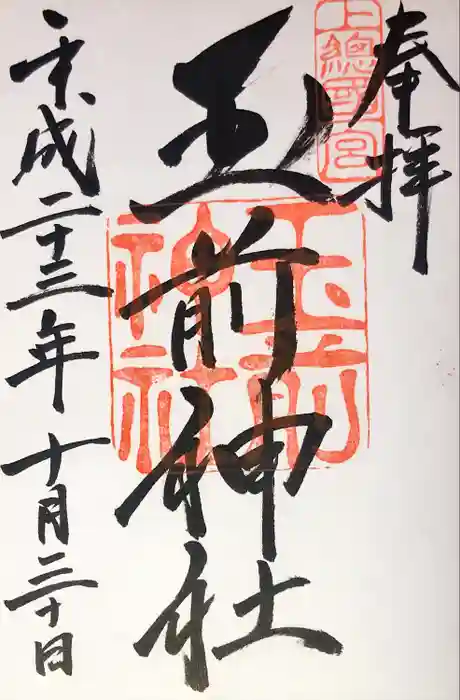 奉拝
上總國一宮
玉前神社
玉前
神社
平成二十三年十月三十日